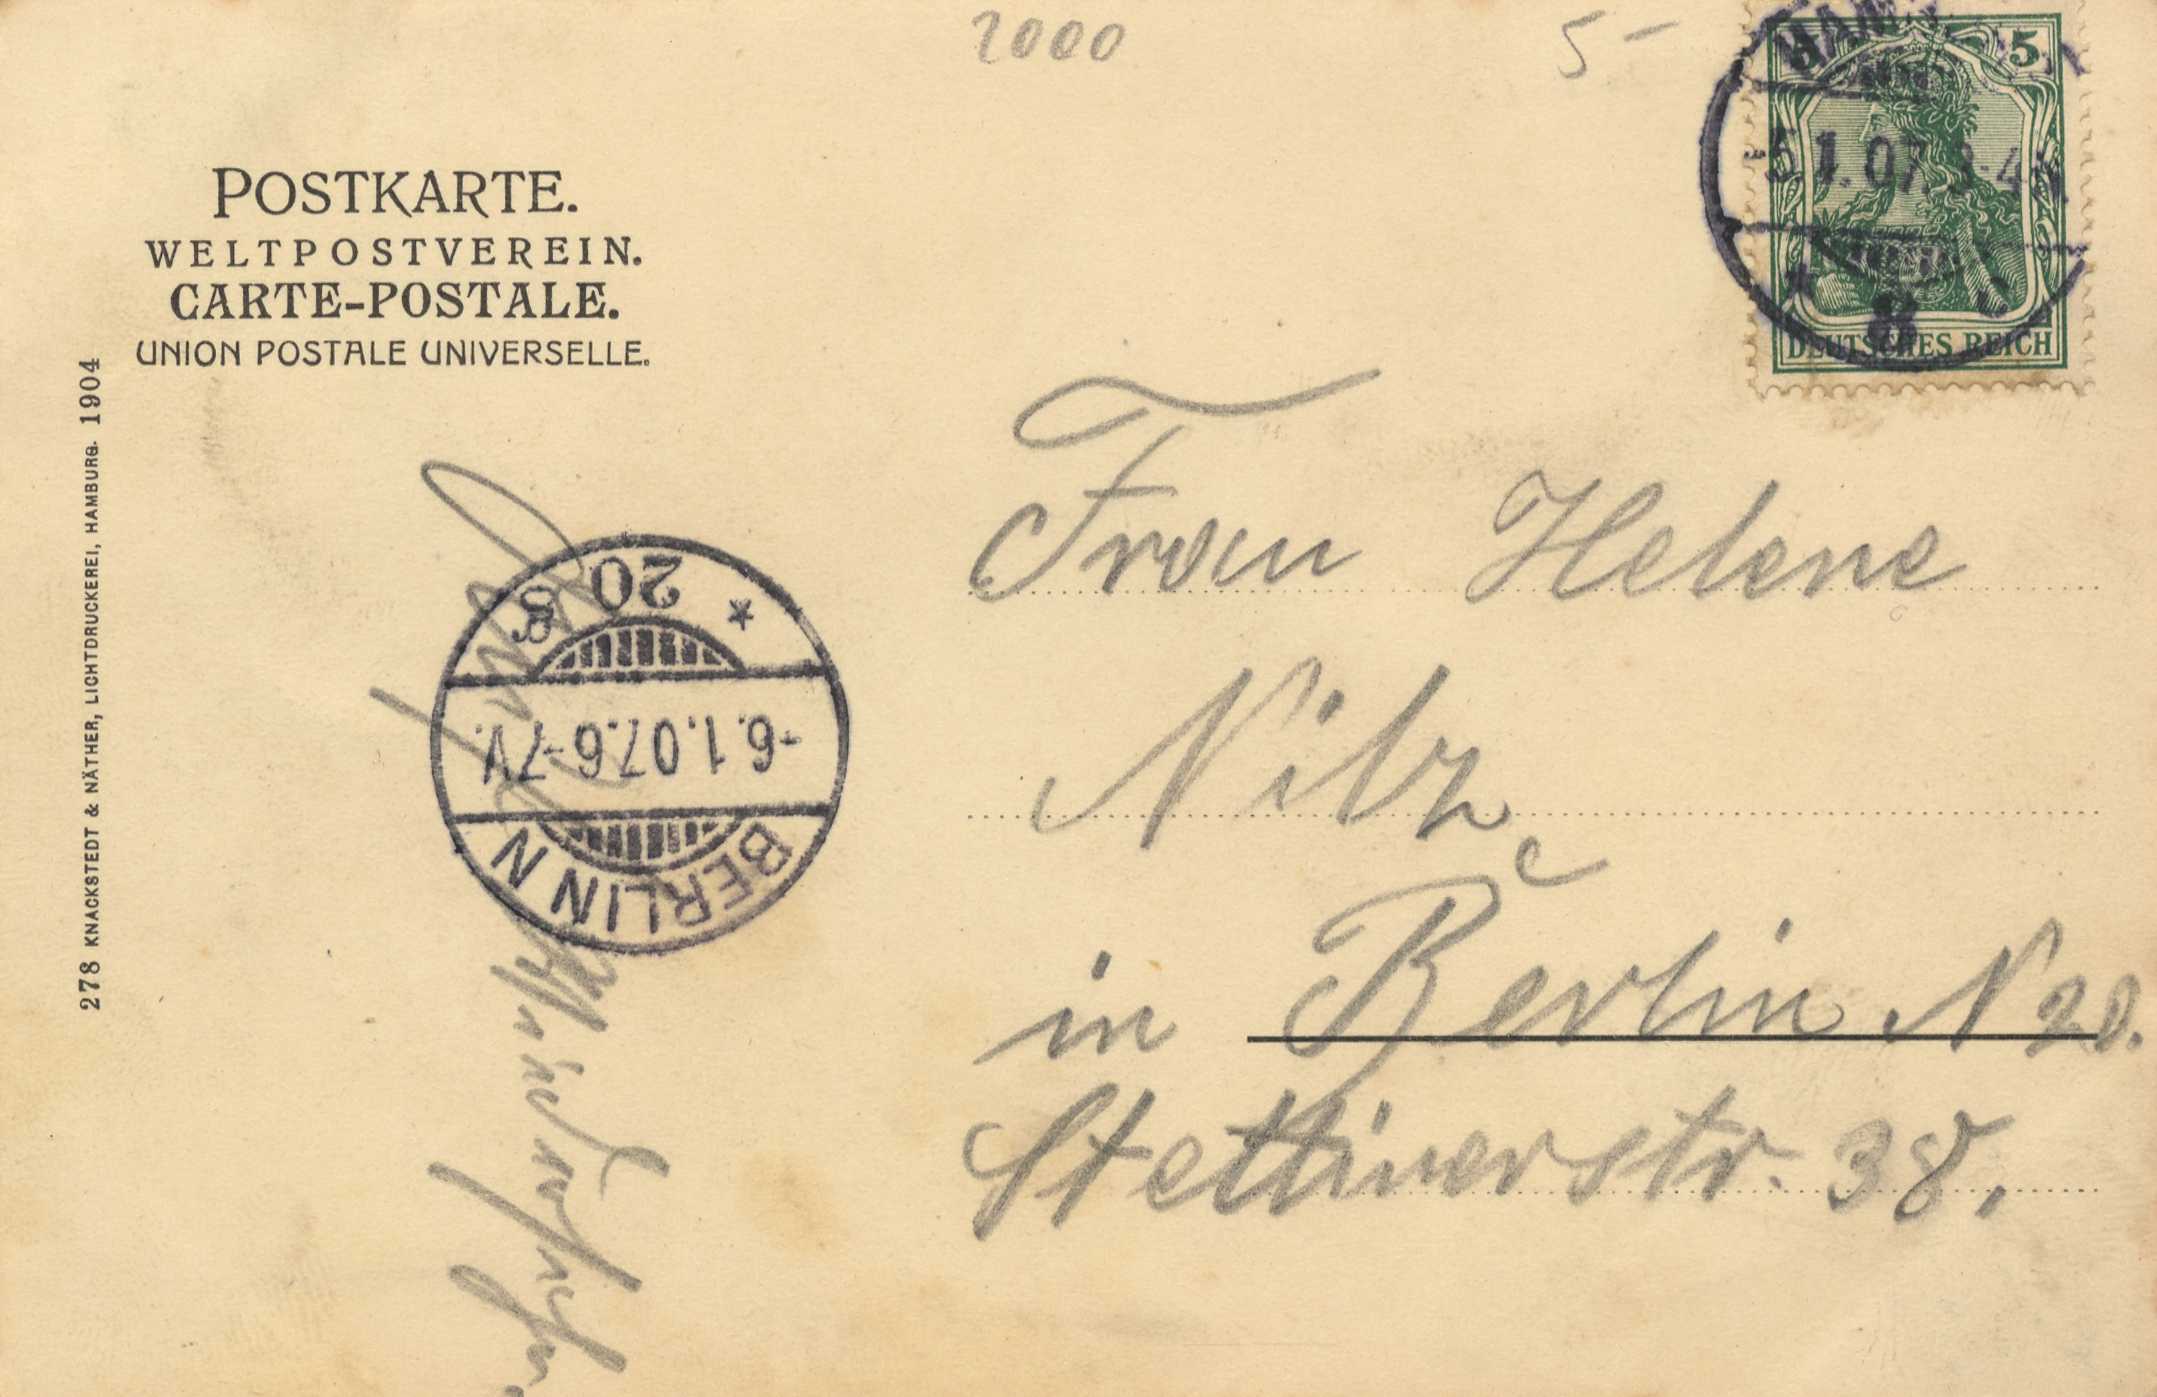 2000
5-
POSTKARTE.
WELTPOSTVEREIN.
CARTE-POSTALE.
UNION POSTALE UNIVERSELLE.
278 KNACKSTEDT & NÄTHER, LICHTDRUCKEREI, HAMBURG. 1904
5
DEUTSCHES REICH
5.1.07.
8
BERLIN N
-6.1.07.6-7V.
20
*
Frau Helene
Nitz
in Berlin N 20.
Stettinerstr. 38.